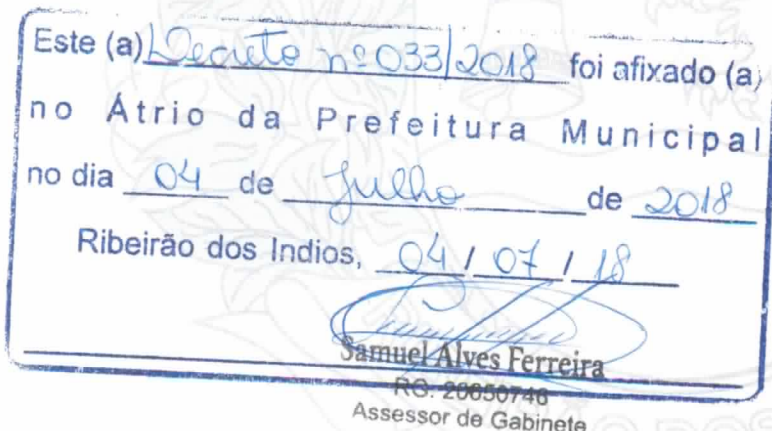 Este (a) Decreto nº 033/2018 foi afixado (a)
no Átrio da Prefeitura Municipal
no dia 04 de Julho de 2018
Ribeirão dos Indios, 04 / 07 / 18
Samuel Alves Ferreira
RG. 20650746
Assessor de Gabinete